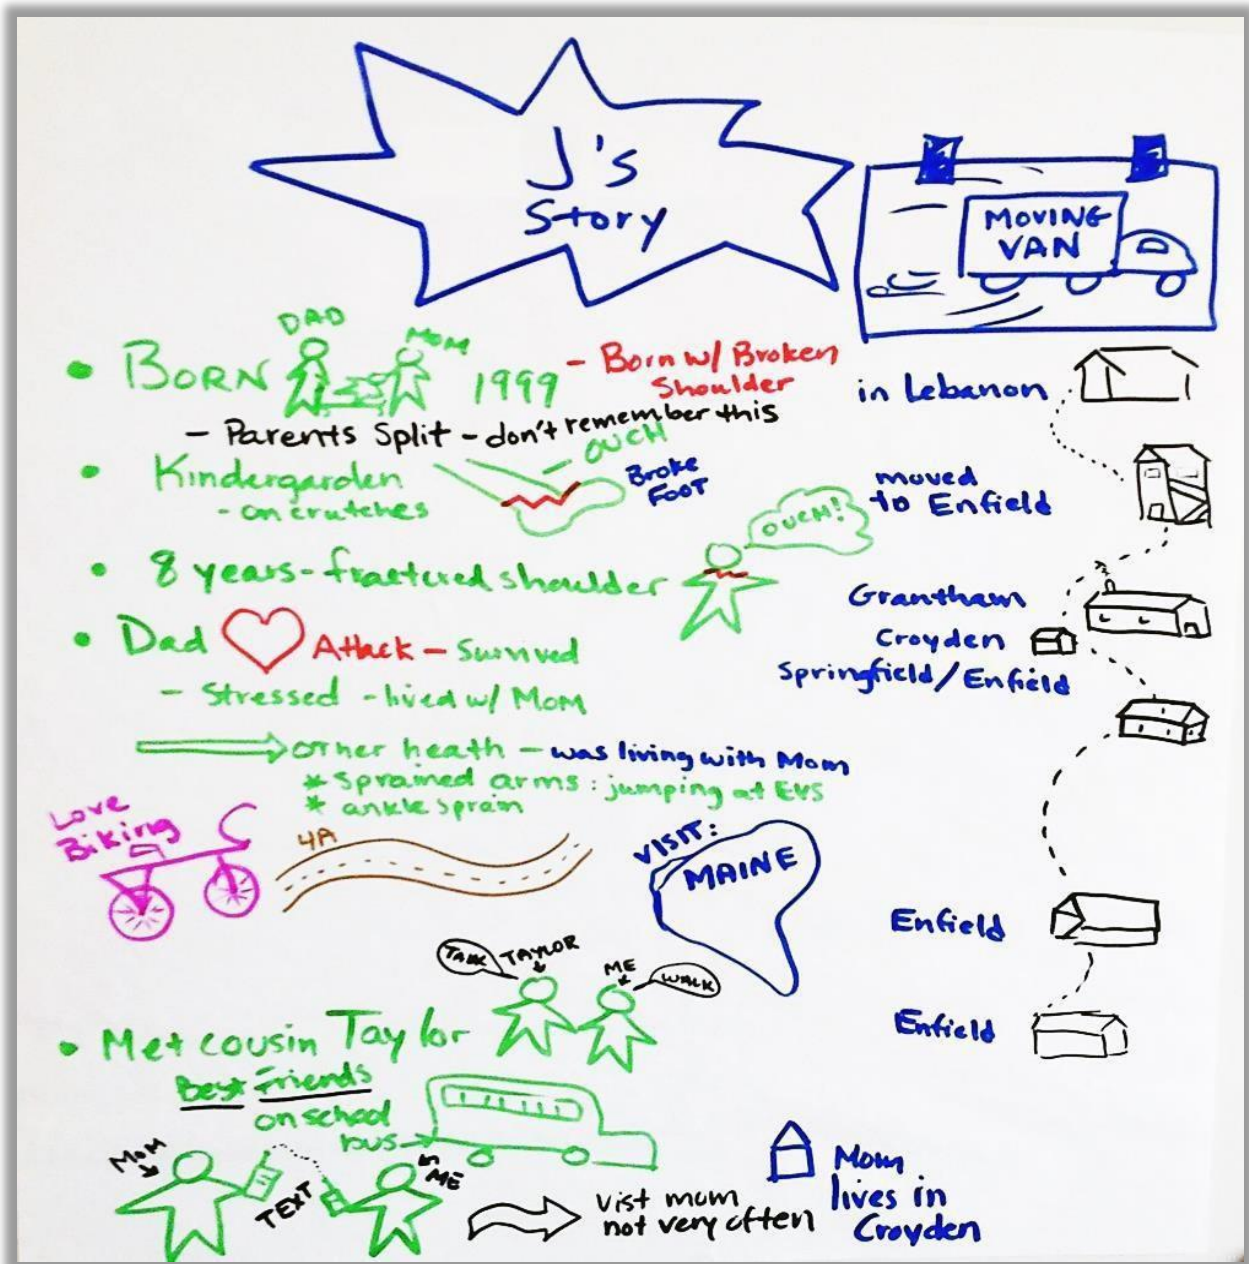 J's
Story
MOVING
VAN
DAD
MOM
• BORN 1999 - Born w/ Broken
Shoulder
in Lebanon
- Parents Split - don't remember this
OUCH
• Kindergarden
- on crutches
Broke
FOOT
moved
to Enfield
OUCH!
• 8 years - fractured shoulder
Grantham
Croyden
Springfield/Enfield
• Dad Attack - Survived
- Stressed - lived w/ Mom
other heath - was living with Mom
* sprained arms: jumping at EVS
* ankle sprain
Love
Biking
4A
VISIT:
MAINE
Enfield
TALK
TAYLOR
ME
WALK
Enfield
• Met cousin Taylor
Best Friends
on school
bus
MOM
TEXT
ME
vist mom
not very often
Mom
lives in
Croyden